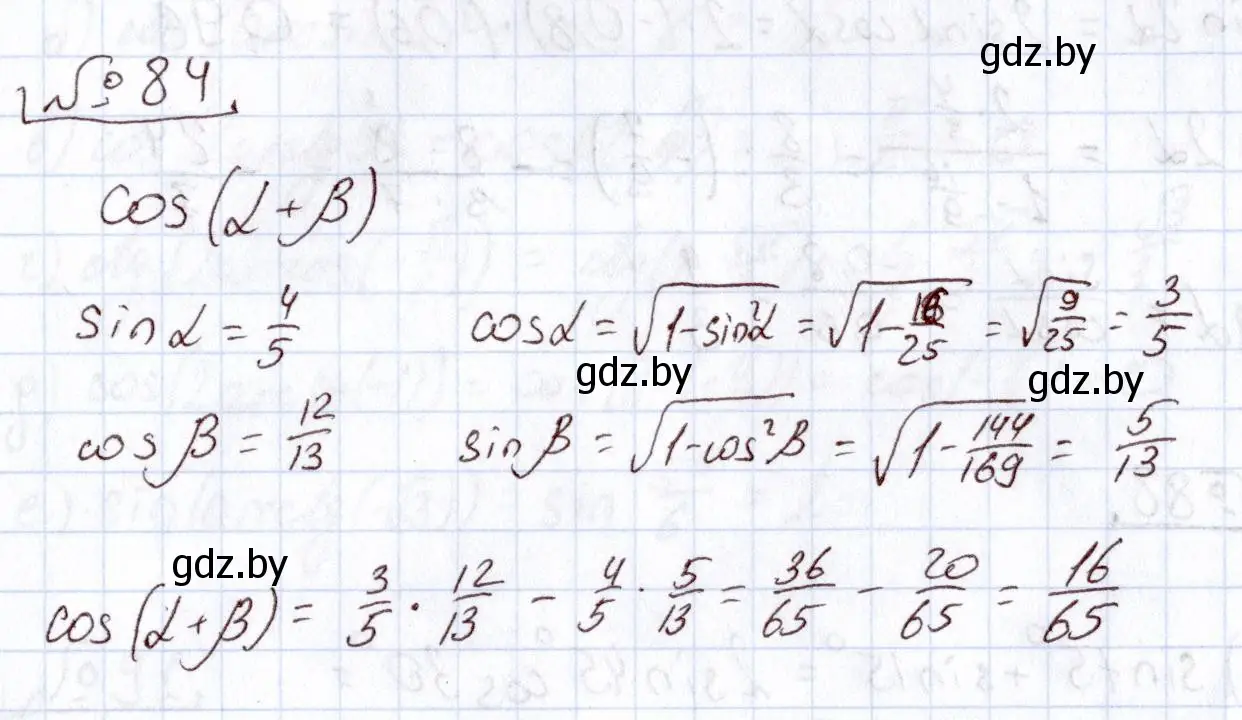 gdz.by
№ 84
cos(α+β)
sin α = 4/5 cos α = √(1-sin²α) = √(1-16/25) = √(9/25) = 3/5
gdz.by gdz.by
cos β = 12/13 sin β = √(1-cos²β) = √(1-144/169) = 5/13
gdz.by
cos(α+β) = 3/5 · 12/13 - 4/5 · 5/13 = 36/65 - 20/65 = 16/65